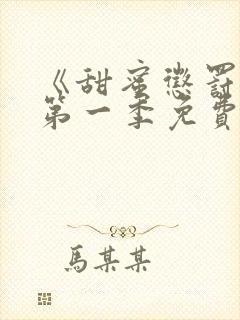 《甜蜜懲罰
第一季免費
馬某某